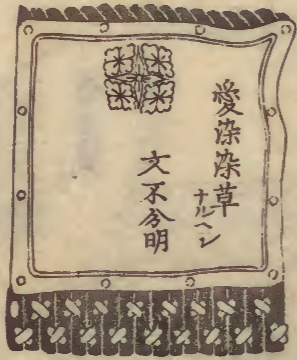 愛染染草
ナルヘシ
文不分明